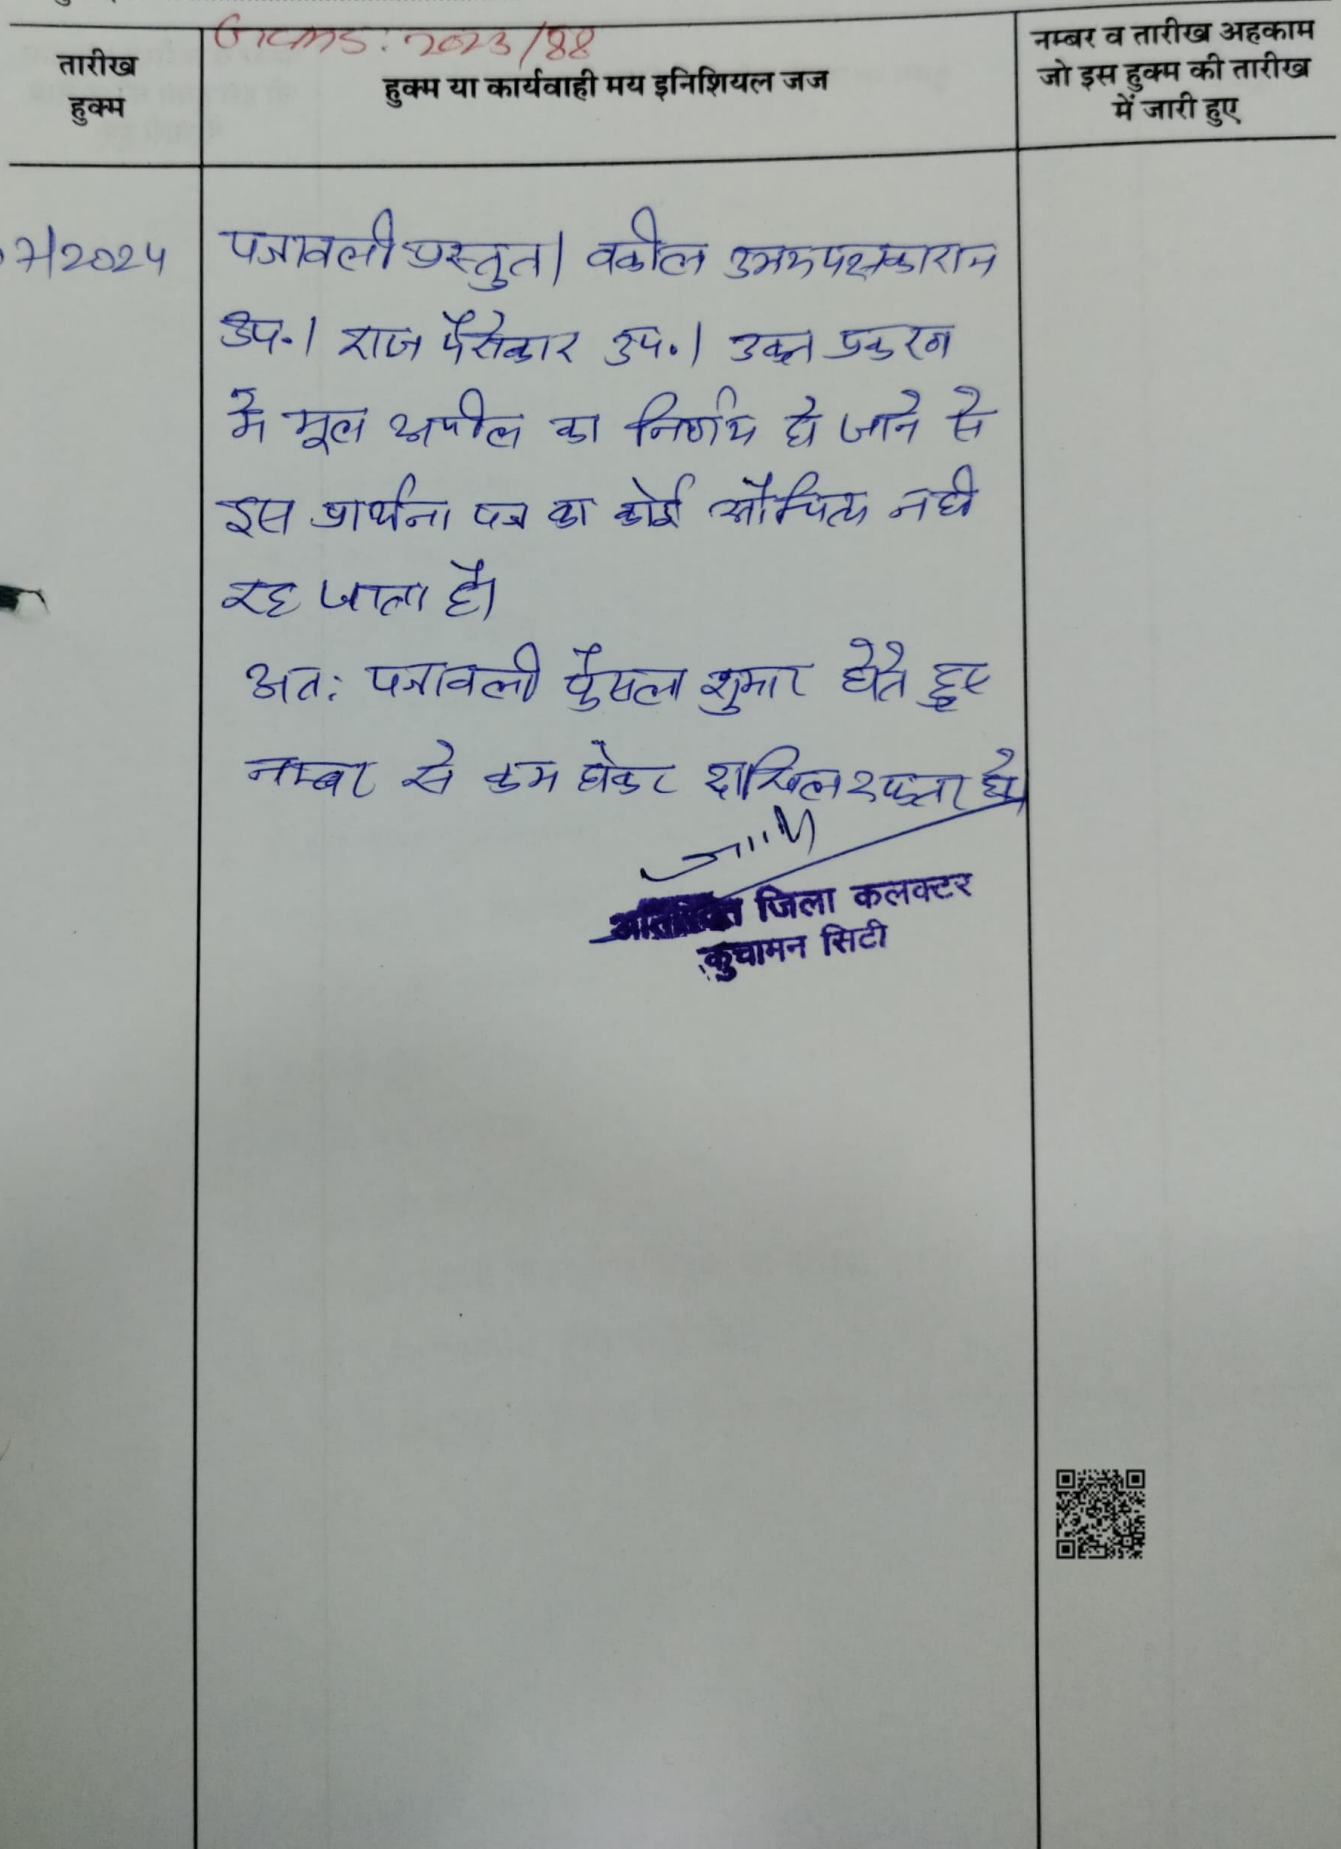 GCMS: 2023/88
तारीख
हुक्म
हुक्म या कार्यवाही मय इनिशियल जज
नम्बर व तारीख अहकाम
जो इस हुक्म की तारीख
में जारी हुए
7/2024
पत्रावली प्रस्तुत। वकील उभयपक्षकारान
उप.। राज पैरोकार उप.। उक्त प्रकरण
मे मूल अपील का निर्णय हो जाने से
इस प्रार्थना पत्र का कोई औचित्य नही
रह जाता है।
अतः पत्रावली फैसला शुमार होते हुए
नम्बर से कम होकर दाखिल दफ्तर हो।
अतिरिक्त जिला कलक्टर
कुचामन सिटी